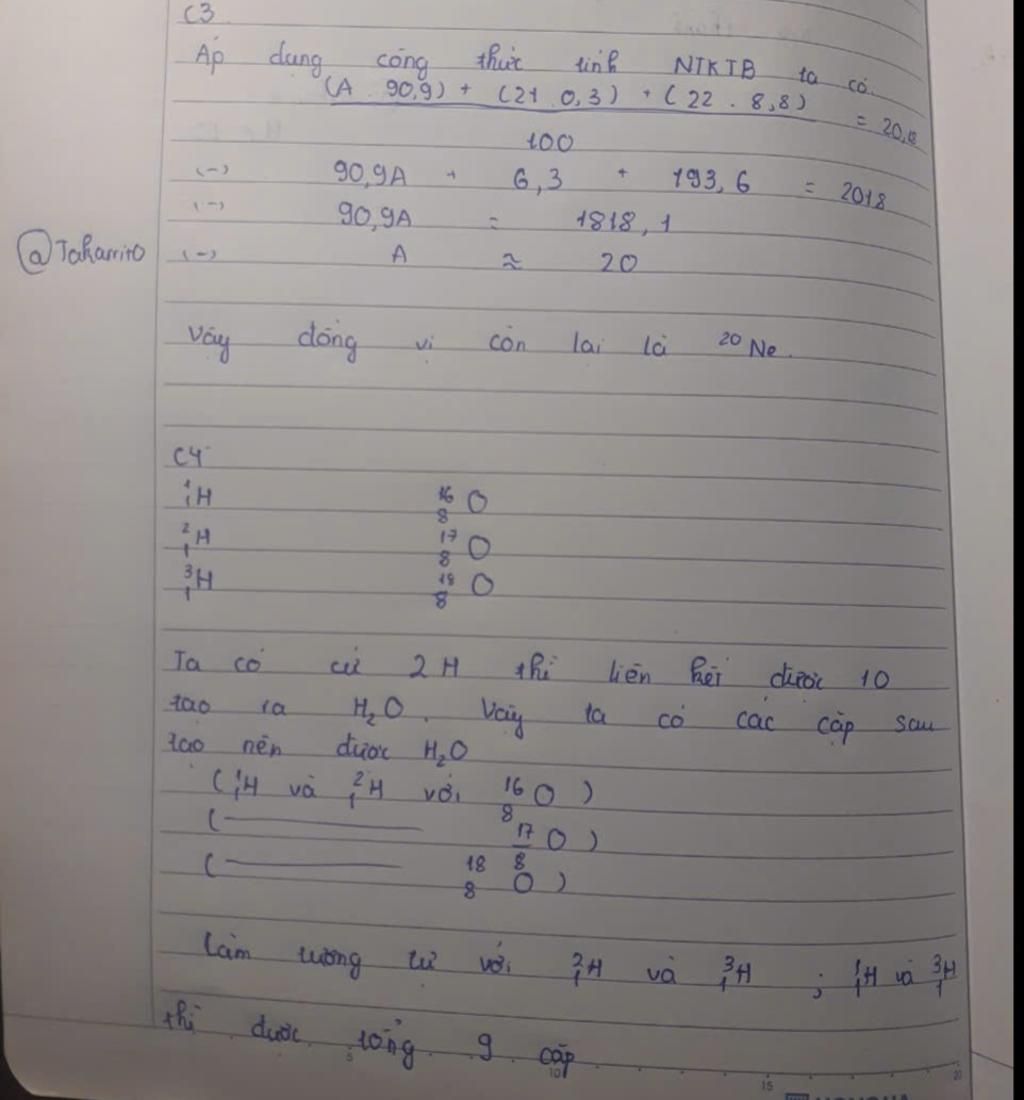 C3
Áp dụng công thức tính NTKTB ta có
(A . 90,9) + (21 . 0,3) + (22 . 8,8) = 20,18
100
(-) 90,9A + 6,3 + 193,6 = 2018
(-) 90,9A = 1818,1
@Taharrito (-) A ≈ 20
Vậy đồng vị còn lại là ²⁰Ne.
C4
¹₁H ¹⁶₈O
²₁H ¹⁷₈O
³₁H ¹⁸₈O
Ta có cứ 2H thì liên kết được 1O
tạo ra H₂O. Vậy ta có các cặp sau
tạo nên được H₂O
(¹₁H và ²₁H với ¹⁶₈O)
(——— ¹⁷₈O)
(——— ¹⁸₈O)
Làm tương tự với ²₁H và ³₁H ; ¹₁H và ³₁H
thì được tổng 9 cặp
5 10 15 20